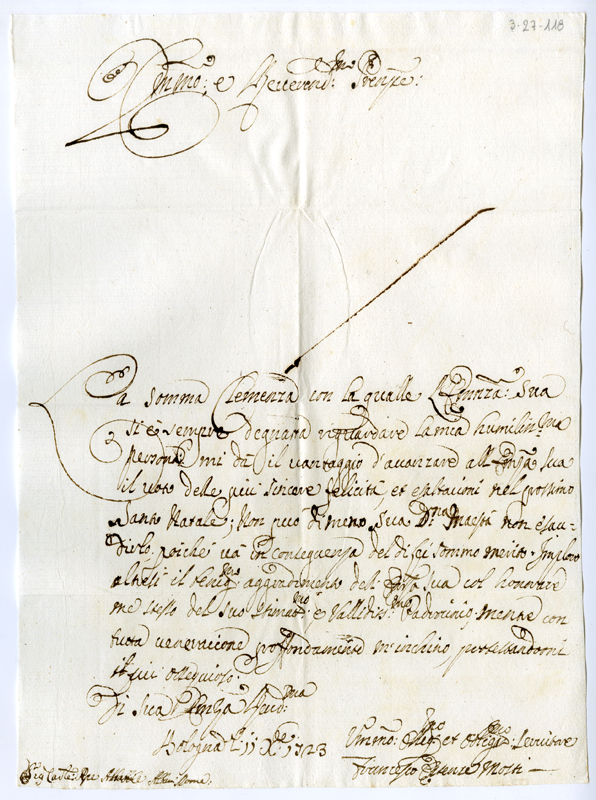 3-27-118
Emmo: e Reverend:mo Prenpe:
La somma Clemenza con la qualle l'Emnza: Sua
si è sempre degnata risguardare la mia humilin:ma
persona mi dà il vantaggio d'avanzare all' Emza Sua
il voto delle più sincere felicità, et esaltaioni nel prossimo
Santo Natale; Non può dimeno Sua Dna Maestà non esau-
dirlo, poiche và in conseguenza del di lei sommo merito. Imploro
altresi il benig:mo aggradimento dell' Emza Sua col honorare
me stesso del suo Stimat:mo e Vallidis:mo Padrocinio, mentre con
tutta veneracione proffondamente m'inchino, protestandomi
il più ossequioso.
Di Sua Emza Revd:ma
Bologna li 11 Xbre: 1723
Ummo: et Obligo: Servitore
Francesco Monti